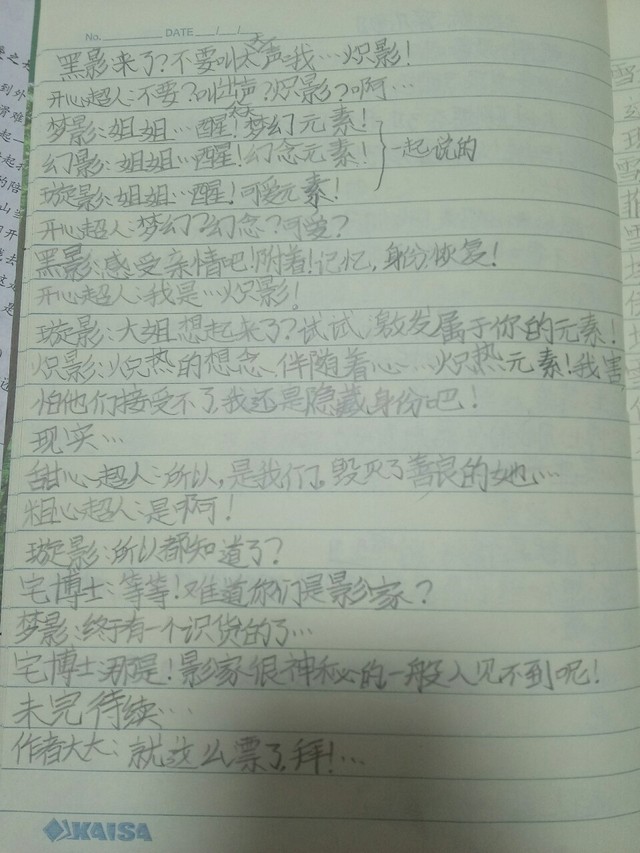 No. DATE / /
黑影来了?不要叫太大声我…炽影!
开心超人:不要?叫出声?炽影?啊…
梦影:姐姐…醒!梦幻元素!
幻影:姐姐…醒!幻念元素! 一起说的
璇影:姐姐…醒!可爱元素!
开心超人:梦幻?幻念?可爱?
黑影:感受亲情吧!附着!记忆,身份,恢复!
开心超人:我是…炽影!
璇影:大姐想起来了?试试,激发属于你的元素!
炽影:火只热的想念、伴随着心…炽热元素!我害
怕他们接受不了,我还是隐藏身份吧!
现实…
甜心超人:所以,是我们,毁灭了善良的她…
粗心超人:是啊!
璇影:所以都知道了?
宅博士:等等!难道你们是影家?
梦影:终于有一个识货的了…
宅博士:那是!影家很神秘的一般人见不到呢!
未完待续…
作者大大:就这么票了,拜!…
KAISA